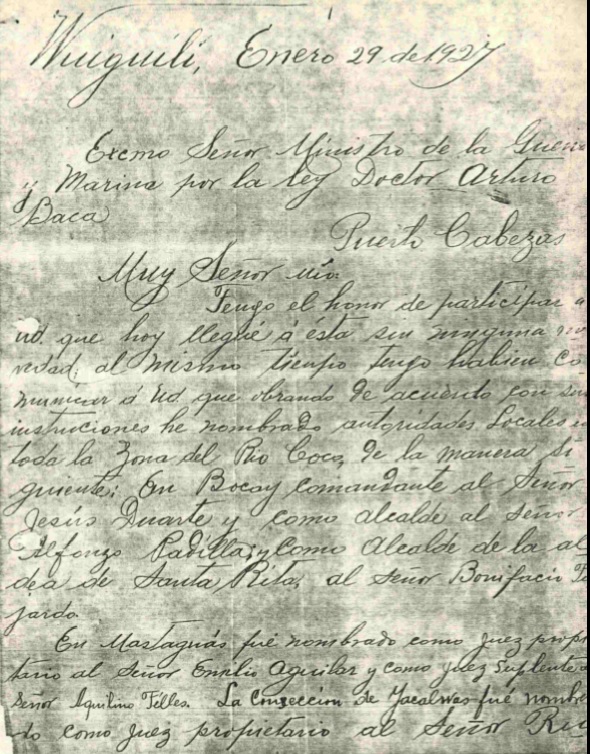 Wuiguilí, Enero 29 de 1927
Excmo Señor Ministro de la Guerr
y Marina por la ley Doctor Arturo
Baca
Puerto Cabezas
Muy Señor mío
Tengo el honor de participar a
Ud. que hoy llegué á esta sin ninguna no
vedad, al mismo tiempo tengo habien co
municar á Ud que obrando de acuerdo con sus
instruciones he nombrado autoridades Locales en
toda la Zona del Rio Coco, de la manera si
guiente: En Bocay comandante al Señor
Jesús Duarte y como alcalde al señor
Alfonzo Padilla; y como Alcalde de la al
dea de Santa Rita, al señor Bonifacio Fa
jardo.
En Mastaguás fué nombrado como juez propie
tario al Señor Emilio Aguilar y como juez suplente a
Señor Aquilino Télles. La de fué nombra
do como juez propietario al Señor